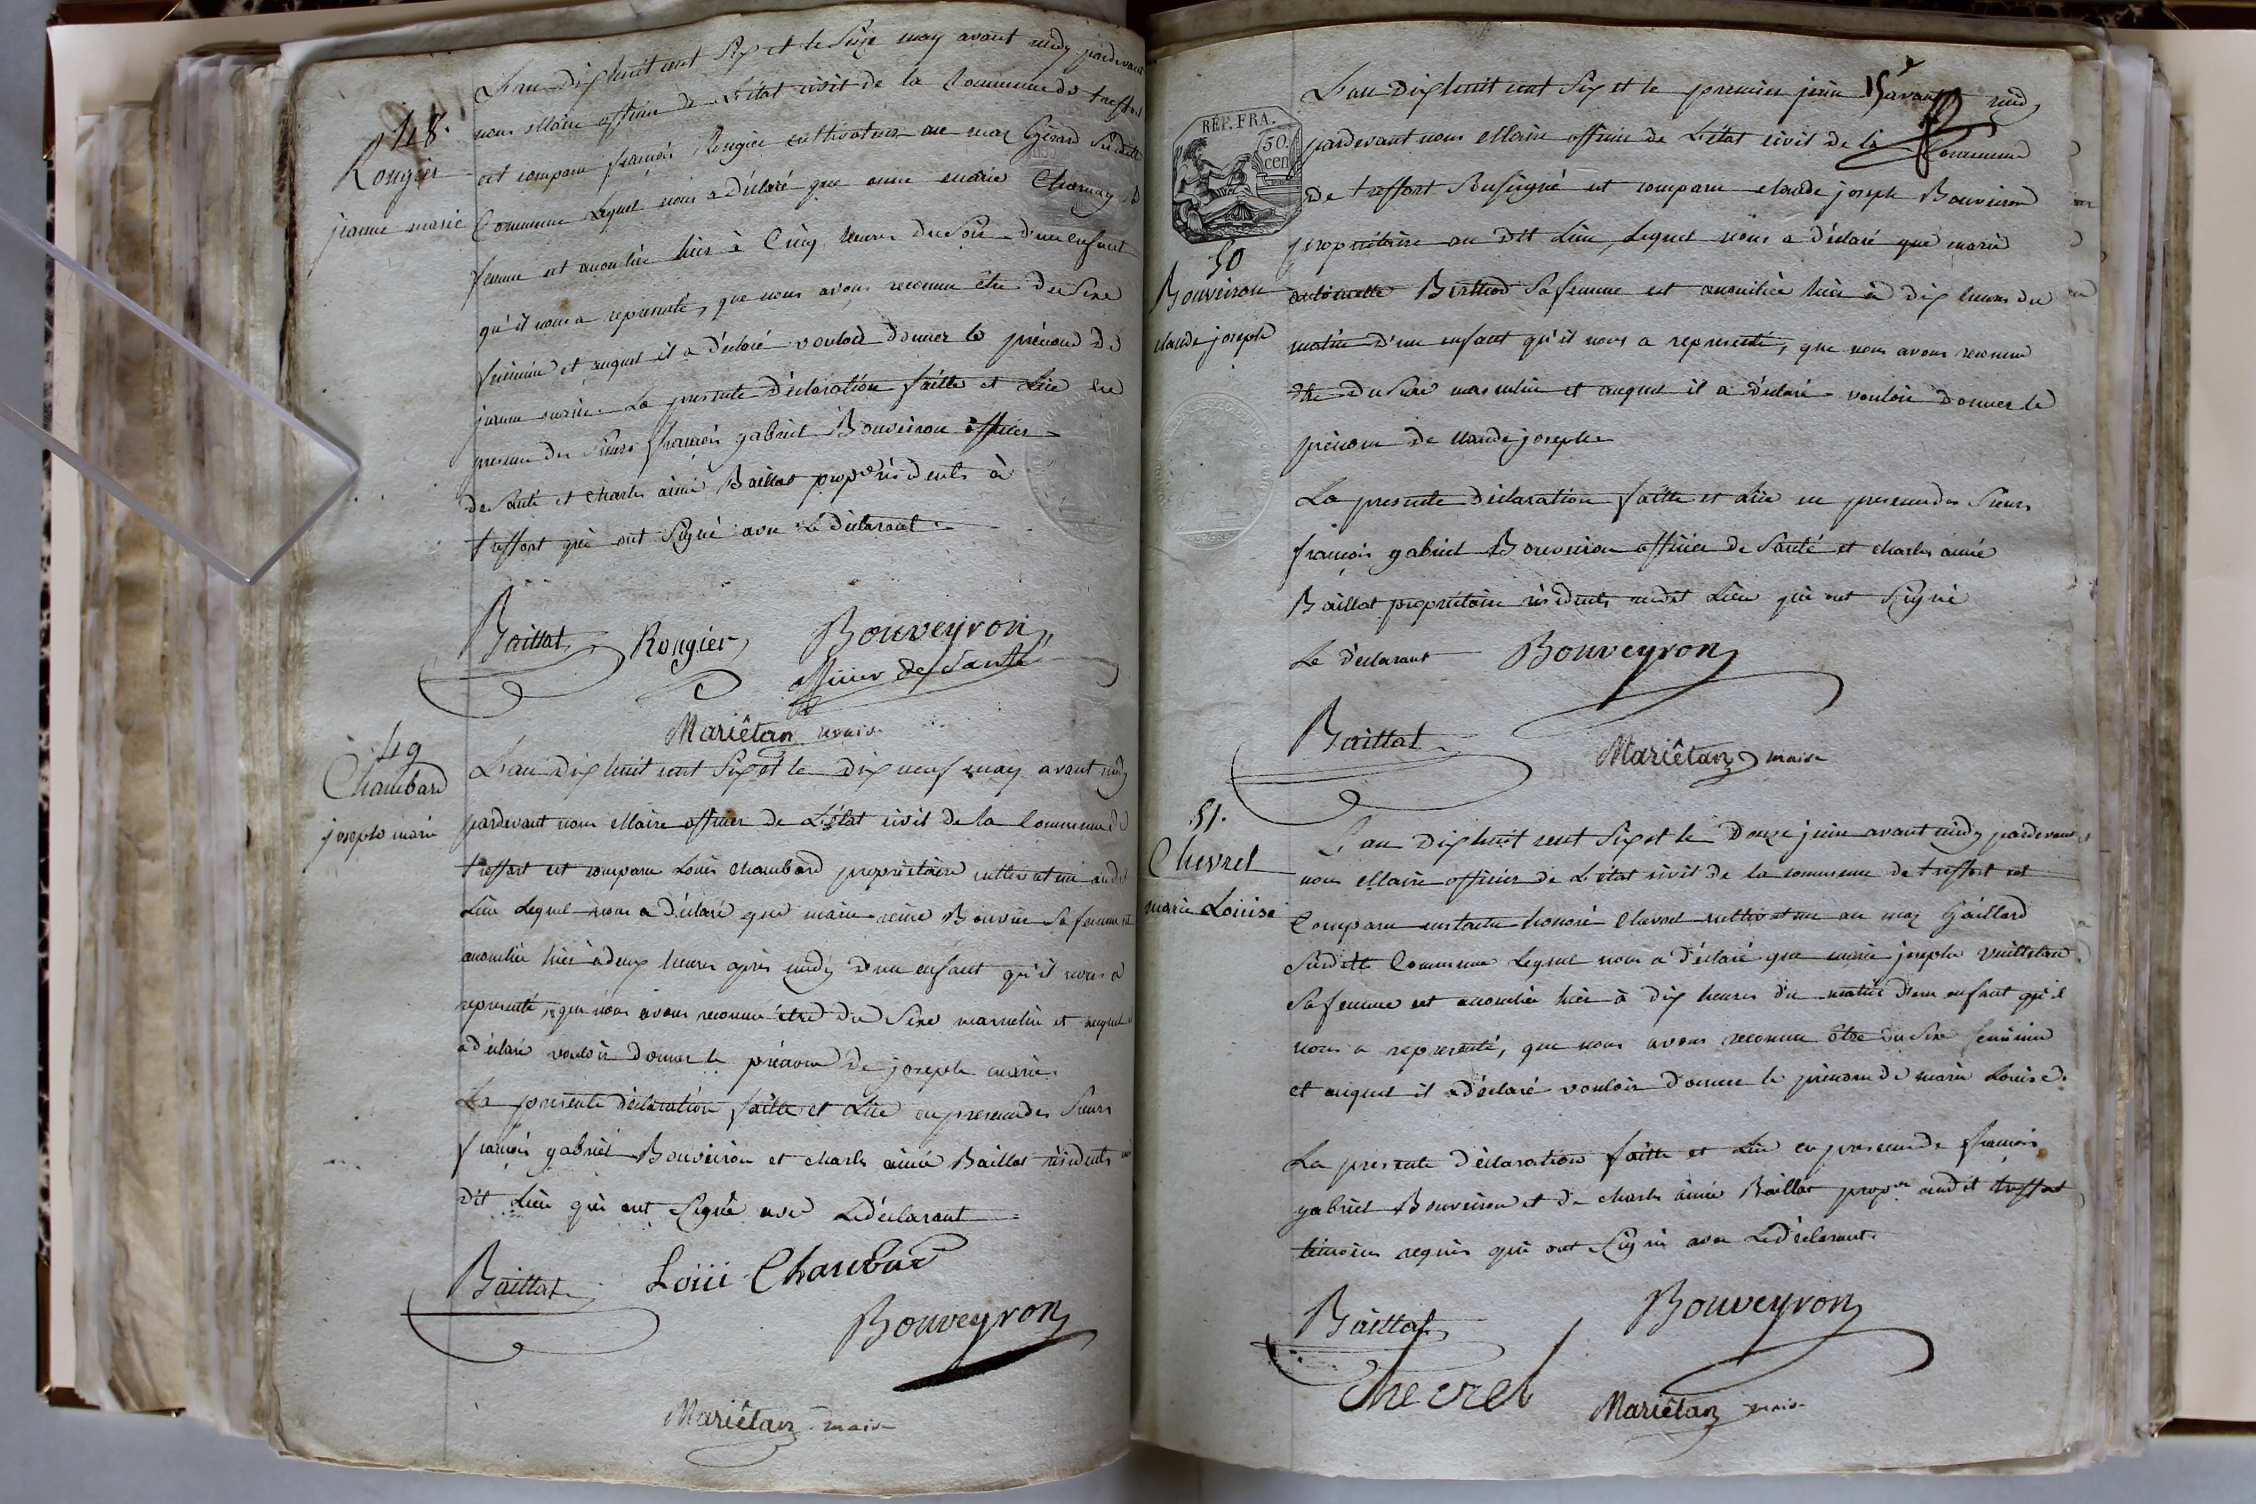 48.
Rougier
jeanne marie
L'an dix huit cent six et le seize may avant midy pardevant
nous Maire officier de L'état civil de la Commune de treffort
est comparu françois Rougier cultivateur au maz Gérard susditte
Commune Lequel nous a déclaré que anne marie Charnay sa
femme est accouchée hier à Cinq heures du soir d'un enfant
qu'il nous a representé, que nous avons reconnu être du Sexe
feminin et auquel il a déclaré vouloir donner le prénom de
jeanne marie. La presente déclaration faitte et Lüe en
presence des Sieurs françois gabriel Bouveiron officier
de Santé et Charles aimé Baillat prop.re résidents à
treffort qui ont Signé avec Le déclarant.
Baillat Rougier Bouveyron
officier de Santé
Mariêtan maire
49
Chambard
joseph marie
L'an dix huit cent Six et le dix neuf may avant midy
pardevant nous Maire officier de L'état civil de la Commune de
treffort est comparu Louis Chambard propriétaire cultivateur audit
Lieu Lequel nous a déclaré que marie reine Bouvier Sa femme est
accouchée hier à deux heures après midy d'un enfant qu'il nous a
representé, que nous avons reconnu être du Sexe masculin et auquel il
a déclaré vouloir donner le prénom de joseph marie.
La presente déclaration faitte et Lüe en presence des Sieurs
françois gabriel Bouveiron et charles aimé Baillat résidents au
dit Lieu qui ont Signé avec Le déclarant
Baillat Loüi Chanbar
Bouveyron
Mariêtan maire
15
REP. FRA.
50. cen
50
Bouveiron
claude joseph
L'an dix huit cent Six et le premier juin avant midy
pardevant nous Maire officier de L'état civil de la Commune
de treffort Soussigné est comparu claude joseph Bouveiron
propriétaire au dit Lieu, Lequel nous a déclaré que marie
antoinette Berthod Sa femme est accouchée hier à dix heures du
matin d'un enfant qu'il nous a representé, que nous avons reconnu
être du Sexe masculin et auquel il a déclaré vouloir donner le
prénom de claude joseph
La presente déclaration faitte et Lüe en presence des Sieurs
françois gabriel Bouveiron officier de Santé et charles aimé
Baillat propriétaire résidents audit Lieu qui ont Signé
Le déclarant Bouveyron
Baillat
Mariêtan maire
51.
Chevrel
marie Loüise
L'an dix huit cent Six et le Douze juin avant midy pardevant
nous Maire officier de L'état civil de la commune de treffort est
Comparu honoré Chevrel cultivateur au maz Gaillard
Susditte Commune Lequel nous a déclaré que marie josephe
Sa femme est accouchée hier à dix heures du matin d'un enfant qu'il
nous a representé, que nous avons reconnu être du Sexe feminin
et auquel il a déclaré vouloir donner le prénom de marie Loüise.
La presente déclaration faitte et Lüe en presence de françois
gabriel Bouveiron et de charles aimé Baillat prop.re audit treffort
témoins requis qui ont Signé avec Le déclarant.
Baillat Bouveyron
Chevrel Mariêtan maire